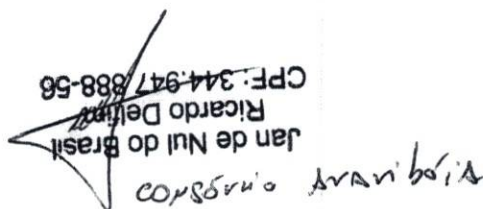 Jan de Nul do Brasil
Ricardo Delfim
CPF: 344.947.888-56
consórcio Araribóia